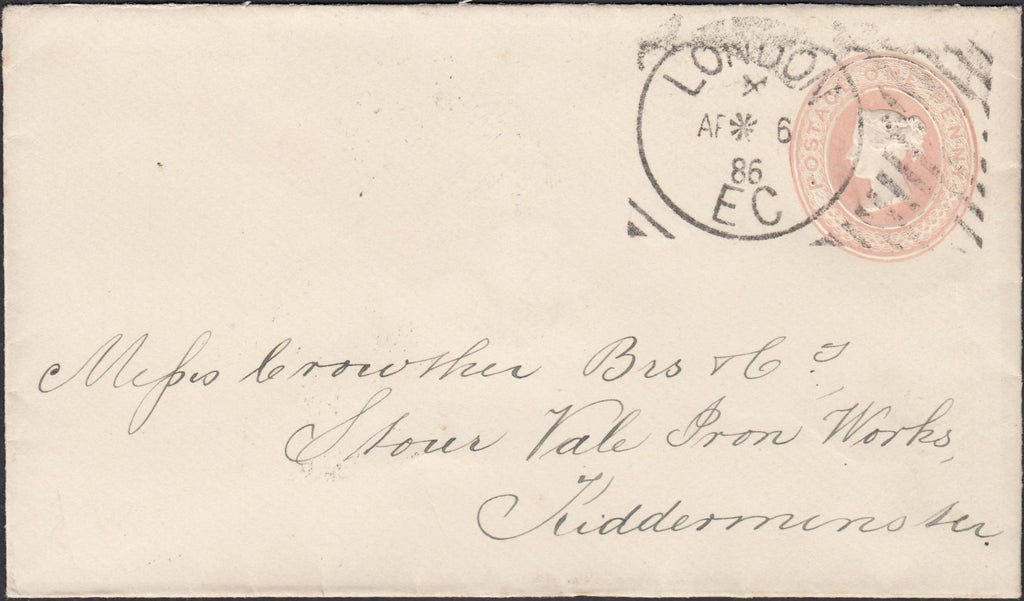 LONDON
X
AP 6
86
EC
POSTAGE ONE PENNY
Messrs Crowther Brs & Co,
Stour Vale Iron Works,
Kidderminster.